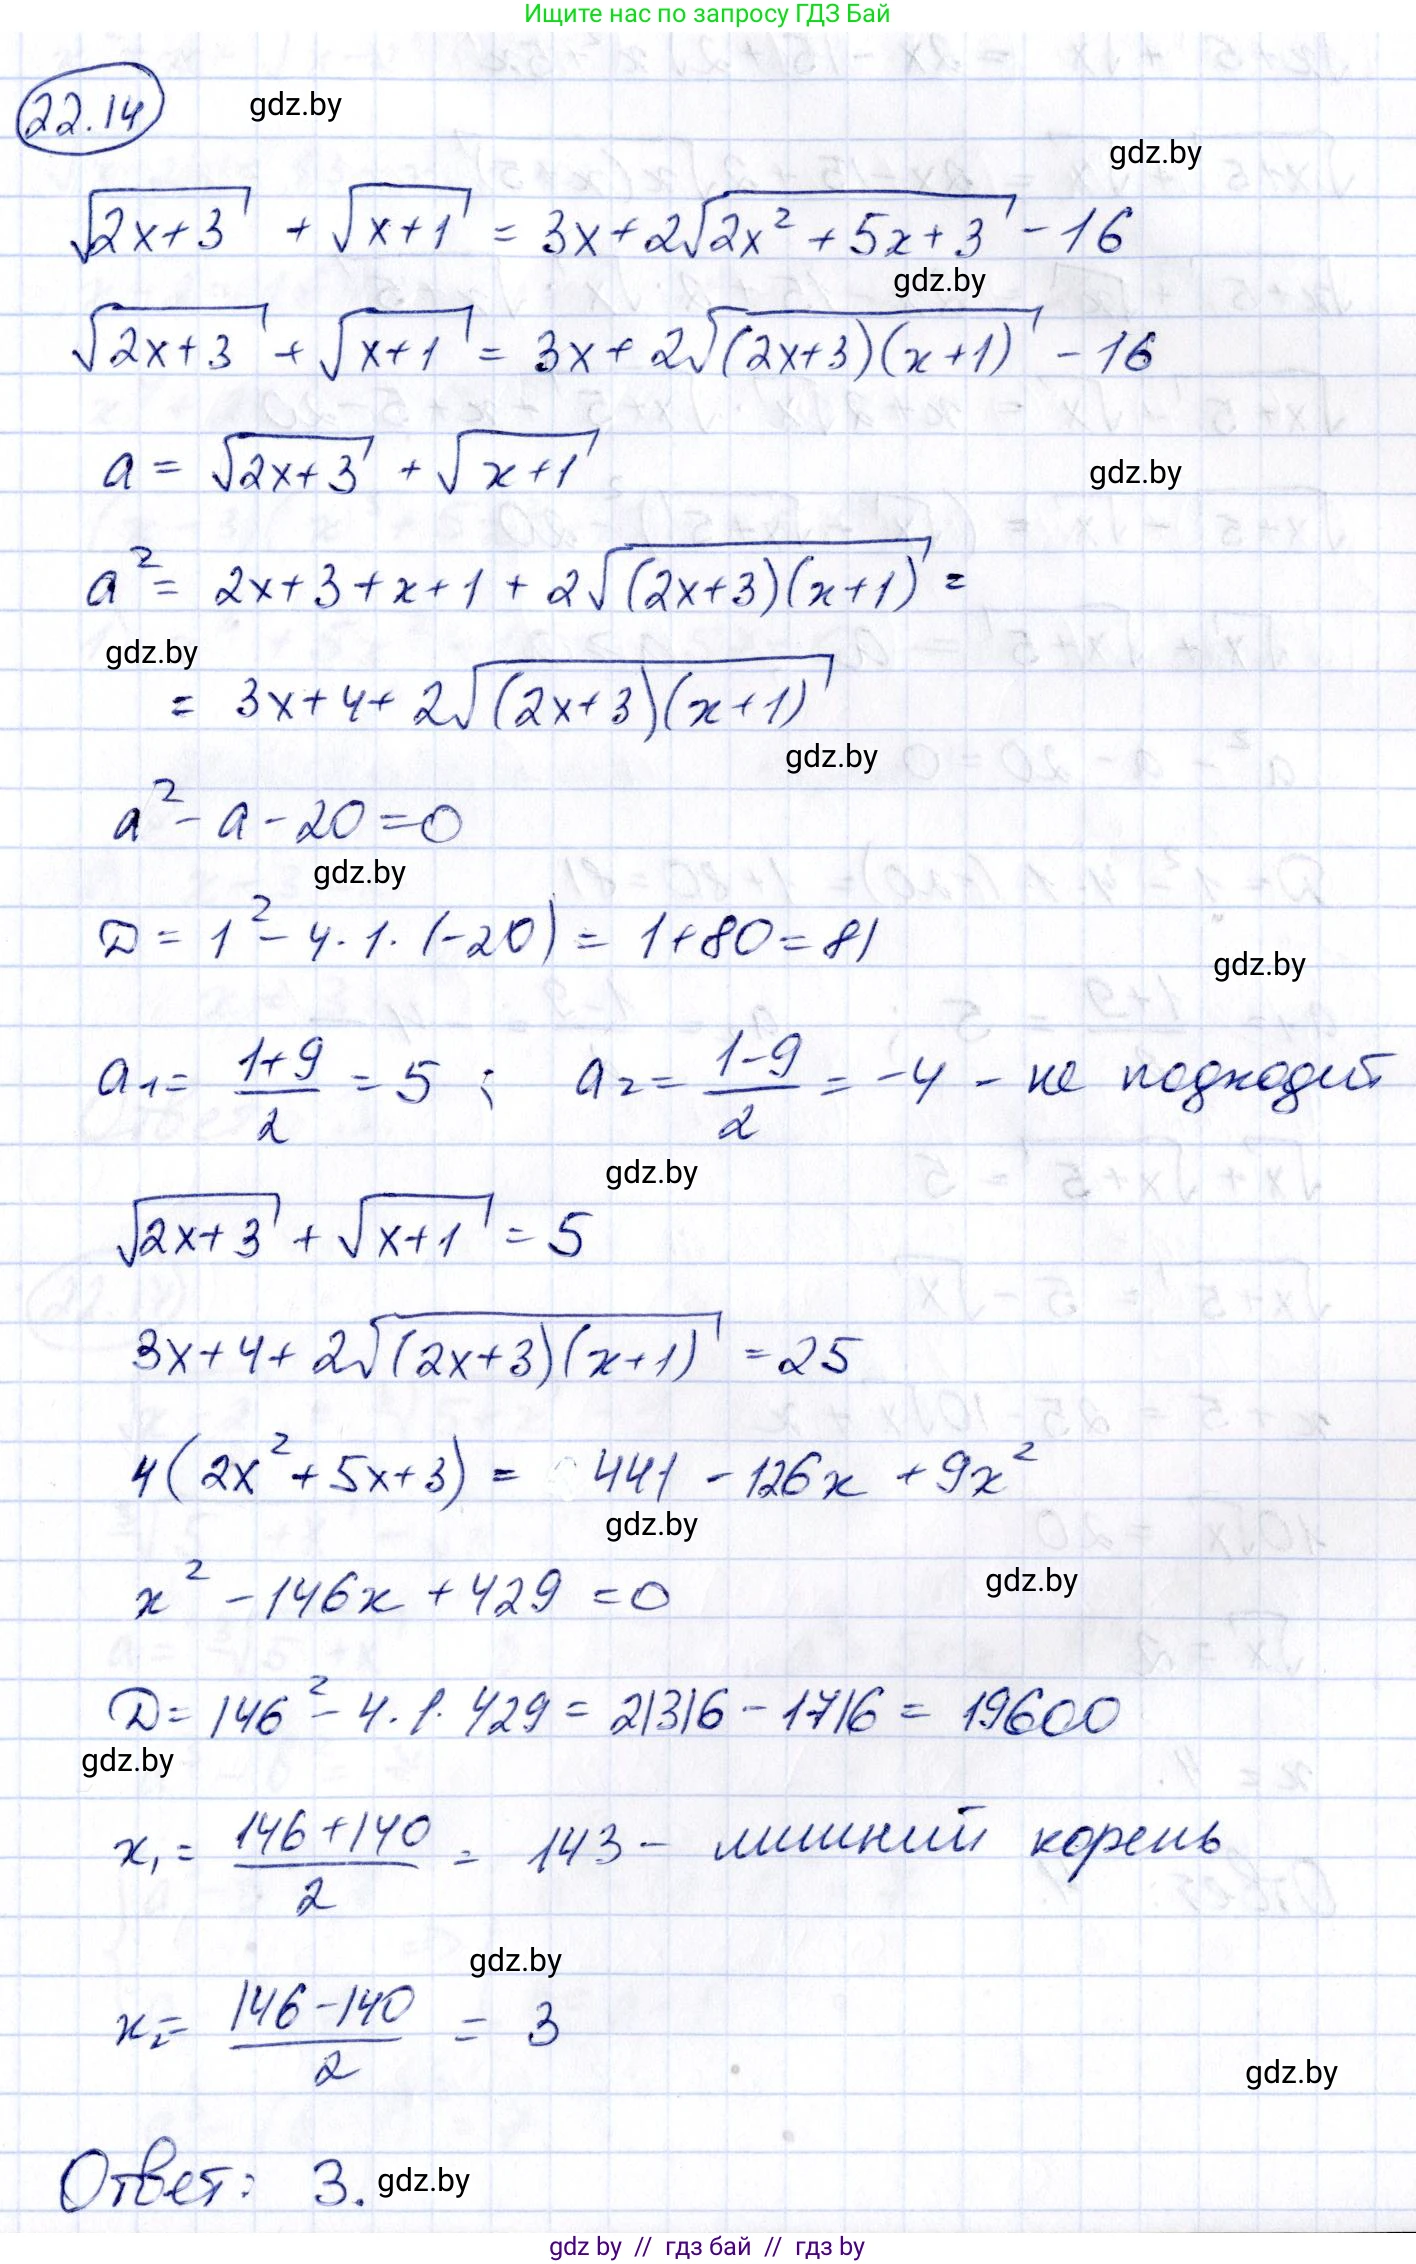 Ищите нас по запросу ГДЗ Бай
22.14
gdz.by
gdz.by
√(2x+3) + √(x+1) = 3x+2√(2x²+5x+3) - 16
gdz.by
√(2x+3) + √(x+1) = 3x+2√((2x+3)(x+1)) - 16
a = √(2x+3) + √(x+1)
gdz.by
a² = 2x+3+x+1+2√((2x+3)(x+1)) =
gdz.by
= 3x+4+2√((2x+3)(x+1))
gdz.by
a² - a - 20 = 0
gdz.by
D = 1² - 4·1·(-20) = 1+80 = 81
gdz.by
a₁ = (1+9)/2 = 5 ; a₂ = (1-9)/2 = -4 - не подходит
gdz.by
√(2x+3) + √(x+1) = 5
3x+4+2√((2x+3)(x+1)) = 25
4(2x²+5x+3) = 441 - 126x + 9x²
gdz.by
gdz.by
x² - 146x + 429 = 0
D = 146² - 4·1·429 = 21316 - 1716 = 19600
gdz.by
x₁ = (146+140)/2 = 143 - лишний корень
gdz.by
x₂ = (146-140)/2 = 3
gdz.by
Ответ: 3.
gdz.by
gdz by // гдз бай // гдз by